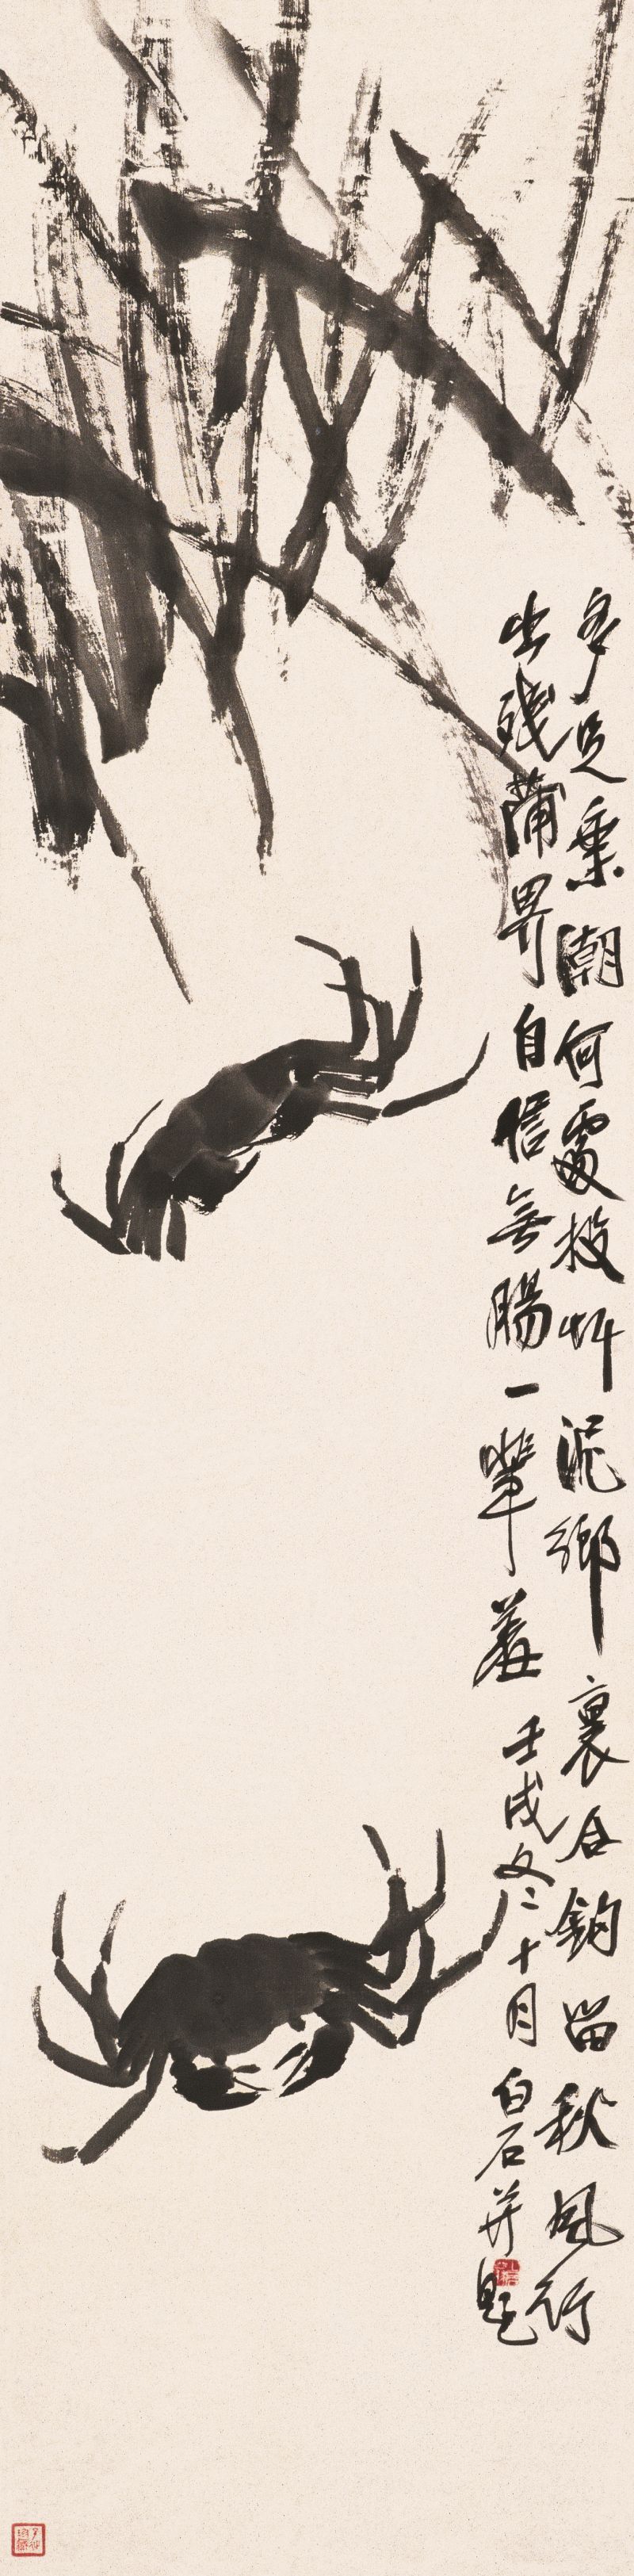 多足乘潮何處投草泥鄉裏合鉤留秋風行
出殘蒲界自信無腸一輩羞
壬戌冬十月白石并題